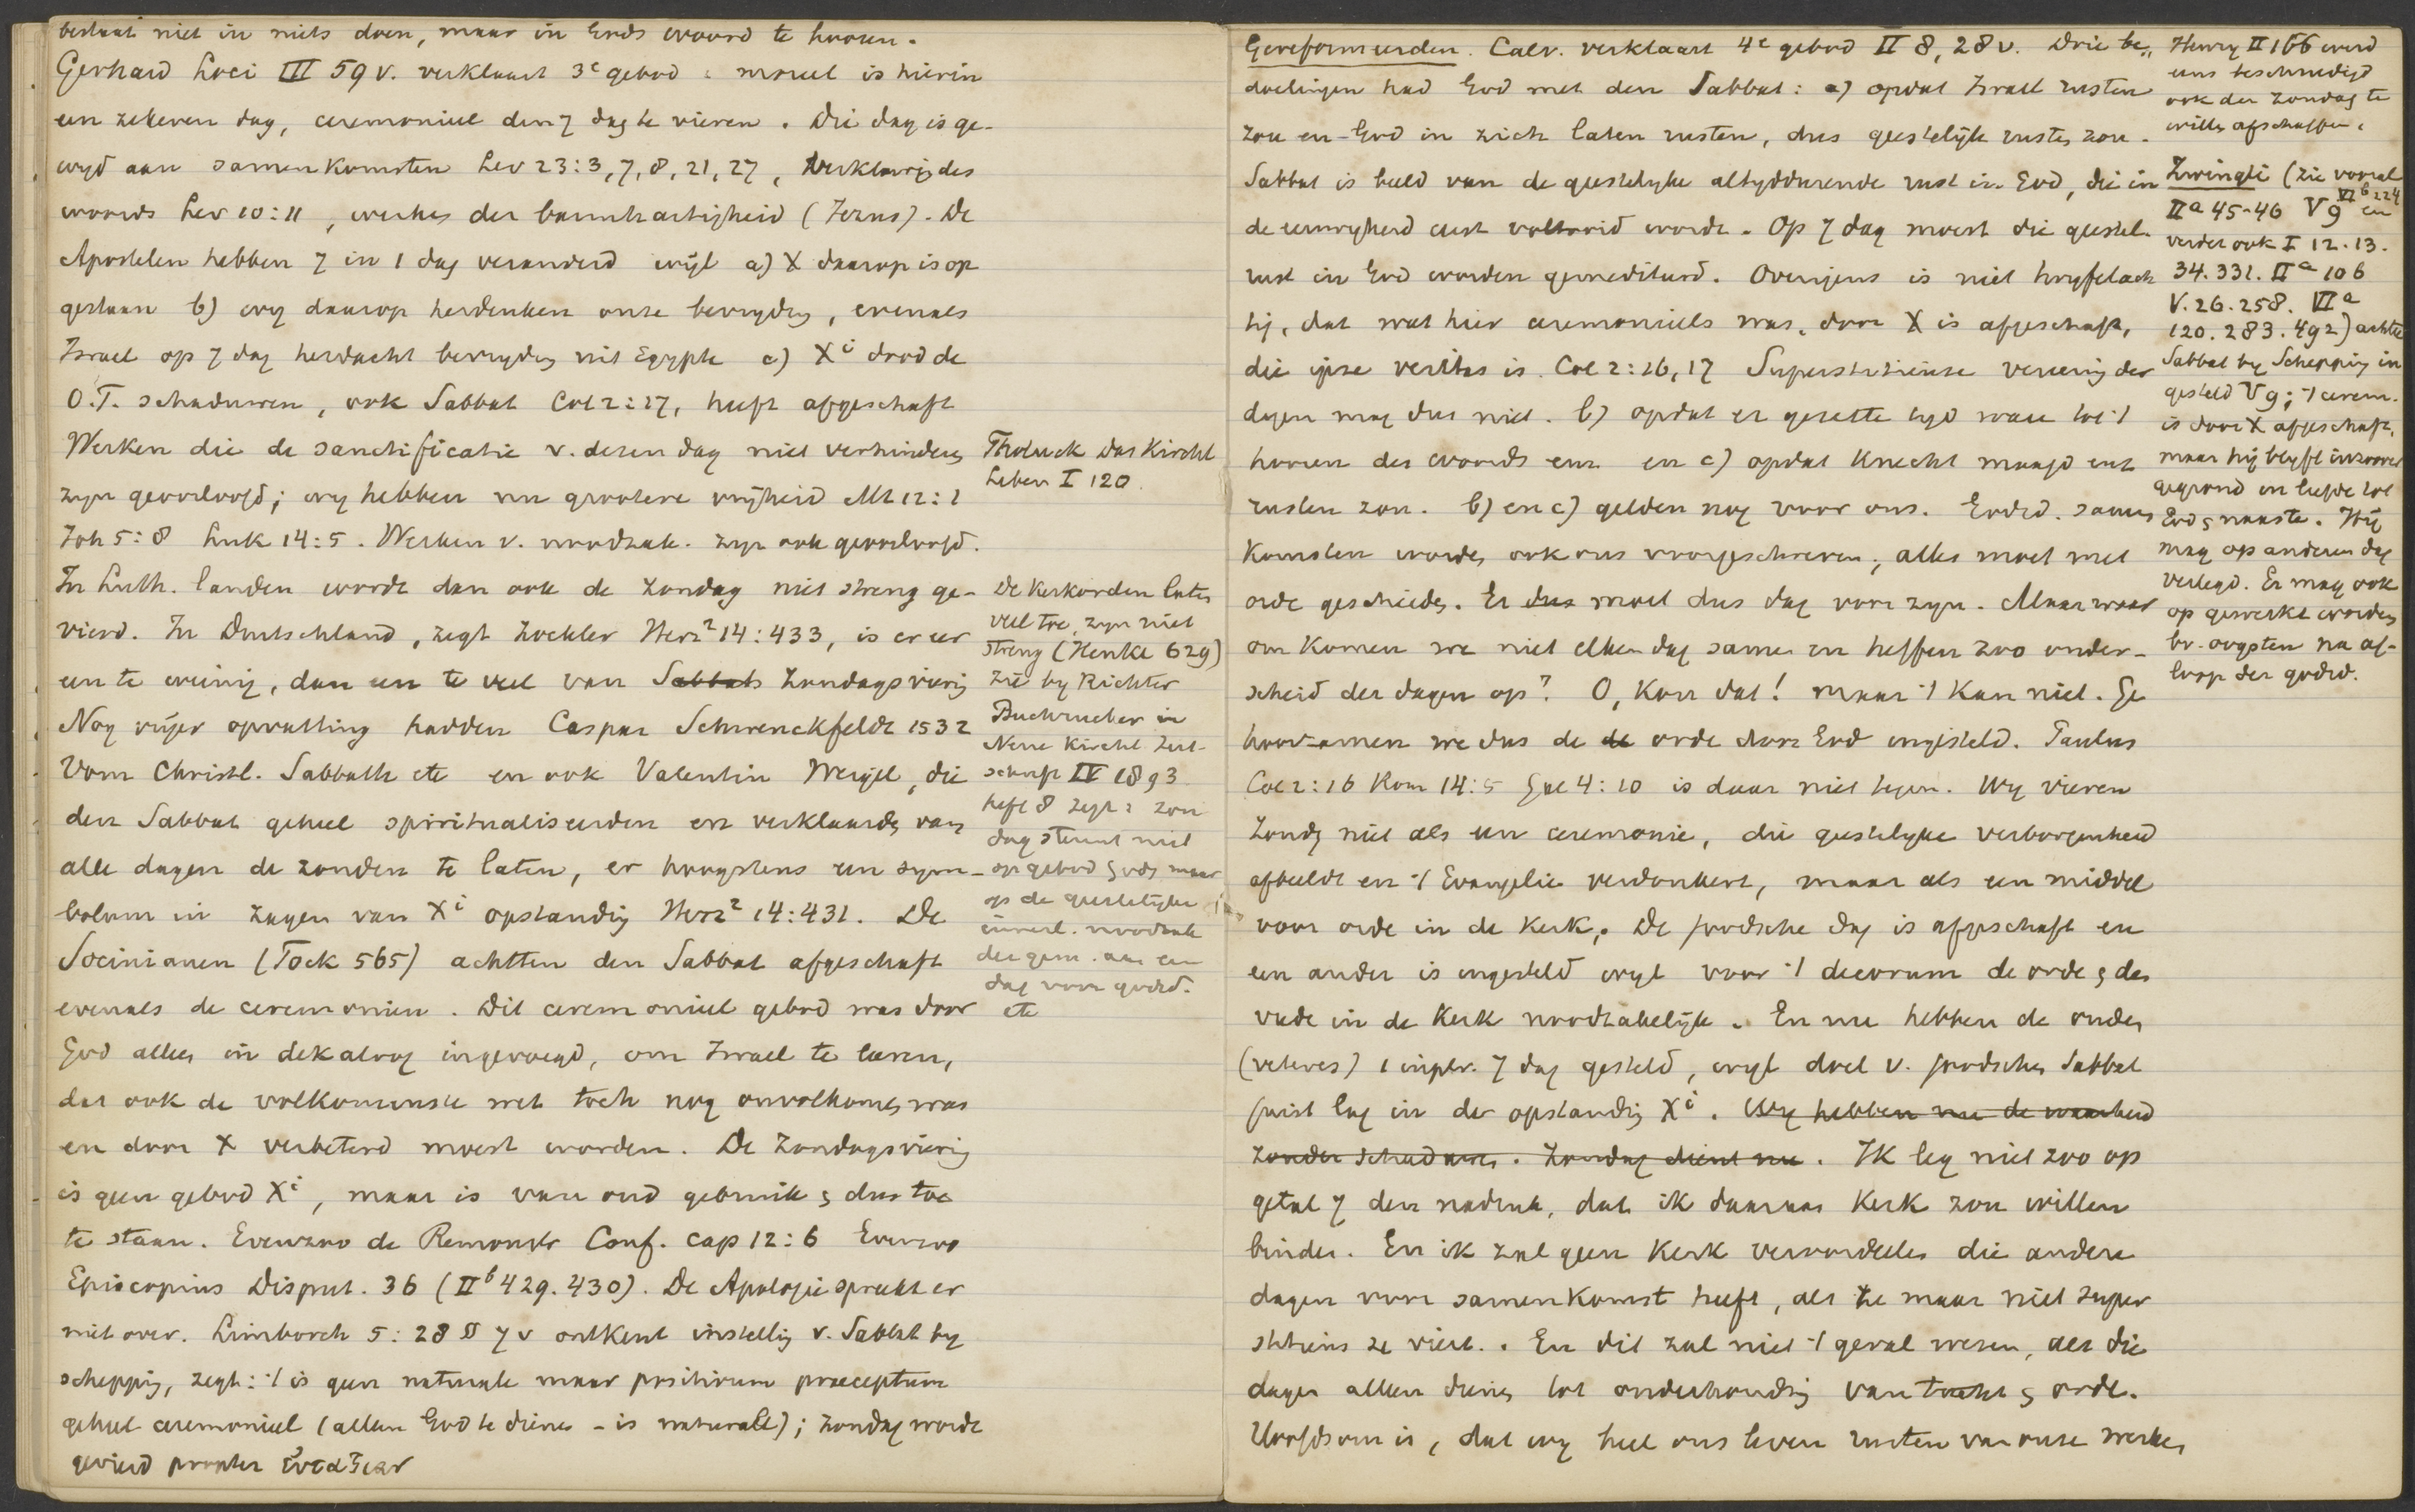 bestaat niet in niets doen, maar in Gods woord te hooren.
Gerhard Loci III 59 v. verklaart 3e gebod : moreel is hierin
een zekeren dag, ceremonieel den 7 dag te vieren. Die dag is ge-
wijd aan samenkomsten Lev 23:3, 7, 8, 21, 27, verklaring des
woords Lev 10:11, werken der barmhartigheid (Jezus). De
Apostelen hebben 7 in 1 dag veranderd wijl a) X daarop is op
gestaan b) wij daarop herdenken onze bevrijding, evenals
Israel op 7 dag herdacht bevrijding uit Egypte c) Xi dood de
O.T. schaduwen, ook Sabbat Col 2:17, heeft afgeschaft
Werken die de sanctificatie v. dezen dag niet verhinderen
zijn geoorloofd; wij hebben nu grootere vrijheid Mt 12:1
Joh 5:8 Luk 14:5. Werken v. noodzak. zijn ook geoorloofd.
In Luth. landen wordt dan ook de Zondag niet streng ge-
vierd. In Duitschland, zegt Zockler Herz2 14:433, is er eer
een te weinig, dan een te veel van Sabbats Zondagsviering
Nog vrijer opvatting hadden Caspar Schwenckfeldt 1532
Vom Christl. Sabbath etc en ook Valentin Weigel, die
den Sabbat geheel spiritualiseerden en verklaarden van
alle dagen de zonden te laten, er hoogstens een sym-
bolum in zagen van Xi opstanding Herz2 14:431. De
Socinianen (Fock 565) achtten den Sabbat afgeschaft
evenals de ceremonien. Dit ceremonieel gebod was door
God alleen in dekaloog ingevoegd, om Israel te leeren,
dat ook de volkomenste wet toch nog onvolkomen was
en door X verbeterd moest worden. De Zondagsviering
is geen gebod Xi, maar is van oud gebruik & dus toe
te staan. Evenzoo de Remonstr Conf. cap 12:6 Evenzoo
Episcopius Disput. 36 (IIb 429. 430). De Apologie spreekt er
niet over. Limborch 5:28 § 7 v ontkent instelling v. Sabbat bij
schepping, zegt: 't is geen naturale maar positivum praeceptum
geheel ceremonieel (alleen God te dienen - is naturale); Zondag wordt
gevierd propter εὐταξιαν
Tholuck Das Kirchl
Leben I 120
De Kerkorden laten
veel toe, zijn niet
streng (Henke 629)
zie bij Richter
Buchrucker in
Neue Kirchl Zeit-
schrift IV 1893
heft 8 zegt: zon
dag steunt niet
op gebod Gods maar
op de geestelijke
innerl. noodzak
der gem. aan een
dag voor godsd.
etc
Gereformeerden. Calv. verklaart 4e gebod II 8, 28 v. Drie be-
doelingen had God met den Sabbat: a) opdat Israel rusten
zou en God in zich laten rusten, dus geestelijk rusten zou.
Sabbat is beeld van de geestelijke altijddurende rust in God, die in
de eeuwigheid eerst voltooid wordt. Op 7 dag moest die geestel.
rust in God worden gemediteerd. Overigens is niet twyfelach
tig, dat wat hier ceremonieels was, door X is afgeschaft,
die ipse veritas is. Col 2:16, 17 Superstitieuse viering der
dagen mag dus niet. b) opdat er gezette tijd ware tot 't
hooren des woords enz en c) opdat knecht maagd enz
rusten zou. b) en c) gelden nog voor ons. Godsd. samen
komsten worden ook ons voorgeschreven, alles moet met
orde geschieden. Er dus moet dus dag voor zijn. Maar waar
om komen we niet elken dag samen en heffen zoo onder-
scheid der dagen op? O, kon dat! maar 't kan niet. Ge
hoorzamen we dus de de orde door God ingesteld. Paulus
Col 2:16 Rom 14:5 Gal 4:10 is daar niet tegen. Wij vieren
Zondg niet als een ceremonie, die geestelijke verborgenheid
afbeeldt en 't Evangelie verdonkert, maar als een middel
voor orde in de Kerk. De joodsche dag is afgeschaft en
een ander is ingesteld wijl voor 't decorum de orde & den
vrede in de Kerk noodzakelijk. En nu hebben de ouden
(veteres) 1 in plr. 7 dag gesteld, wijl doel v. joodschen Sabbat
juist lag in de opstanding Xi. Wij hebben nu de waarheid
zonder schaduwen. Zondag dient nu. Ik leg niet zoo op
getal 7 den nadruk, dat ik daaraan Kerk zou willen
binden. En ik zal geen Kerk veroordeelen die andere
dagen voor samenkomst heeft, als ze maar niet super
stitieus ze viert. En dit zal niet 't geval wezen, als die
dagen alleen dienen tot onderhouding van tucht & orde.
Hoofdsom is, dat wij heel ons leven rusten van onze werken
Henry II 166 werd
eens beschuldigd
ook den Zondag te
willen afschaffen.
Zwingli (zie vooral
VIb 224
IIa 45-46 V 9 en
verder ook I 12. 13.
34. 331. IIa 106
V. 26. 258. VIa
120. 283. 492) achtte
Sabbat bij Schepping in
gesteld V 9; 't cerem.
is door X afgeschaft,
maar hij blijft inzoover
gegrond in liefde tot
God & naaste. Hij
mag op anderen dag
verlegd. Er mag ook
op gewerkt worden
bv. oogsten na af-
loop der godsd.